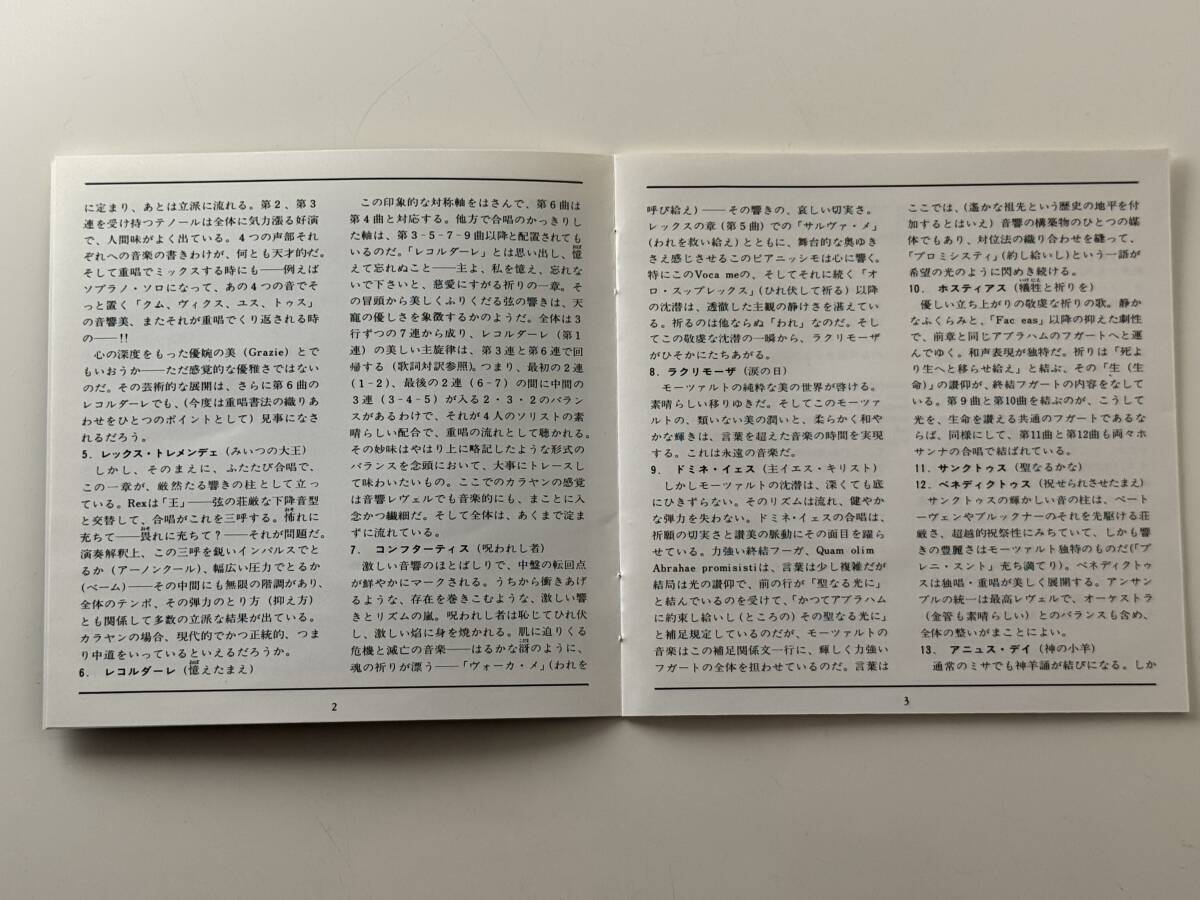 に定まり、あとは立派に流れる。第2、第3
連を受け持つテノールは全体に気力漲る好演
で、人間味がよく出ている。4つの声部それ
ぞれへの音楽の書きわけが、何とも天才的だ。
そして重唱でミックスする時にも——例えば
ソプラノ・ソロになって、あの4つの音でそ
っと置く「クム、ヴィクス、ユス、トゥス」
の音響美、またそれが重唱でくり返される時
の——!!
心の深度をもった優婉の美（Grazie）とで
もいおうか——ただ感覚的な優雅さではない
のだ。その芸術的な展開は、さらに第6曲の
レコルダーレでも、(今度は重唱書法の織りあ
わせをひとつのポイントとして）見事になさ
れるだろう。
5. レックス・トレメンデェ（みいつの大王）
しかし、そのまえに、ふたたび合唱で、
この一章が、厳然たる響きの柱として立っ
ている。Rexは「王」——弦の荘厳な下降音型
と交替して、合唱がこれを三呼する。怖れに
充ちて——畏れに充ちて？——それが問題だ。
演奏解釈上、この三呼を鋭いインパルスでと
るか（アーノンクール）、幅広い圧力でとるか
(ベーム)——その中間にも無限の階調があり、
全体のテンポ、その弾力のとり方（抑え方）
とも関係して多数の立派な結果が出ている。
カラヤンの場合、現代的でかつ正統的、つま
り中道をいっているといえるだろうか。
6. レコルダーレ（憶えたまえ）
この印象的な対称軸をはさんで、第6曲は
第4曲と対応する。他方で合唱のかっきりし
た軸は、第3-5-7-9曲以降と配置されても
いるのだ。「レコルダーレ」とは思い出し、憶
えて忘れぬこと——主よ、私を憶え、忘れな
いで下さいと、慈愛にすがる祈りの一章。そ
の冒頭から美しくふりくだる弦の響きは、天
寵の優しさを象徴するかのようだ。全体は3
行ずつの7連から成り、レコルダーレ（第1
連）の美しい主旋律は、第3連と第6連で回
帰する（歌詞対訳参照)。つまり、最初の2連
(1-2)、最後の2連（6-7）の間に中間の
3連（3-4-5）が入る2・3・2のバラン
スがあるわけで、それが4人のソリストの素
晴らしい配合で、重唱の流れとして聴かれる。
その妙味はやはり上に略記したような形式の
バランスを念頭において、大事にトレースし
て味わいたいもの。ここでのカラヤンの感覚
は音響レヴェルでも音楽的にも、まことに入
念かつ繊細だ。そして全体は、あくまで淀ま
ずに流れている。
7. コンフターティス（呪われし者）
激しい音響のほとばしりで、中盤の転回点
が鮮やかにマークされる。うちから衝きあげ
るような、存在を巻きこむような、激しい響
きとリズムの嵐。呪われし者は恥じてひれ伏
し、激しい焔に身を焼かれる。肌に迫りくる
危機と滅亡の音楽——はるかな谺のように、
魂の祈りが漂う——「ヴォーカ・メ」（われを
2
呼び給え）——その響きの、哀しい切実さ。
レックスの章（第5曲）での「サルヴァ・メ」
(われを救い給え）とともに、舞台的な奥ゆき
さえ感じさせるこのピアニッシモは心に響く。
特にこのVoca meの、そしてそれに続く「オ
ロ・スップレックス」(ひれ伏して祈る）以降
の沈潜は、透徹した主観の静けさを湛えてい
る。祈るのは他ならぬ「われ」なのだ。そし
てこの敬虔な沈潜の一瞬から、ラクリモーザ
がひそかにたちあがる。
8. ラクリモーザ（涙の日）
モーツァルトの純粋な美の世界が啓ける。
素晴らしい移りゆきだ。そしてこのモーツァ
ルトの、類いない美の潤いと、柔らかく和や
かな輝きは、言葉を超えた音楽の時間を実現
する。これは永遠の音楽だ。
9. ドミネ・イェス（主イエス・キリスト）
しかしモーツァルトの沈潜は、深くても底
にひきずらない。そのリズムは流れ、健やか
な弾力を失わない。ドミネ・イェスの合唱は、
祈願の切実さと讃美の脈動にその面目を躍ら
せている。力強い終結フーガ、Quam olim
Abrahae promisistiは、言葉は少し複雑だが
結局は光の讃仰で、前の行が「聖なる光に」
と結んでいるのを受けて、「かつてアブラハム
に約束し給いし(ところの)その聖なる光に」
と補足規定しているのだが、モーツァルトの
音楽はこの補足関係文一行に、輝しく力強い
フガートの全体を担わせているのだ。言葉は
ここでは、(遙かな祖先という歴史の地平を付
加するとはいえ）音響の構築物のひとつの媒
体でもあり、対位法の織り合わせを縫って、
「プロミシスティ」(約し給いし)という一語が
希望の光のように閃めき続ける。
10. ホスティアス（犠牲と祈りを）
優しい立ち上がりの敬虔な祈りの歌。静か
なふくらみと、「Fac eas」以降の抑えた剛性
で、前章と同じアブラハムのフガートへと運
んでゆく。和声表現が独特だ。祈りは「死よ
り生へと移らせ給え」と結ぶ、その「生（生
命)」の讃仰が、終結フガートの内容をなして
いる。第9曲と第10曲を結ぶのが、こうして
光を、生命を讃える共通のフガートであるな
らば、同様にして、第11曲と第12曲も両々ホ
サンナの合唱で結ばれている。
11. サンクトゥス（聖なるかな）
12. ベネディクトゥス（祝せられさせたまえ）
サンクトゥスの輝かしい音の柱は、ベート
ーヴェンやブルックナーのそれを先駆ける荘
厳さ、超越的祝祭性にみちていて、しかも響
きの豊麗さはモーツァルト独特のものだ(「プ
レニ・スント」充ち満てり)。ベネディクトゥ
スは独唱・重唱が美しく展開する。アンサン
ブルの統一は最高レヴェルで、オーケストラ
(金管も素晴らしい）とのバランスも含め、
全体の整いがまことによい。
13. アニュス・デイ（神の小羊）
通常のミサでも神羊誦が結びになる。しか
3